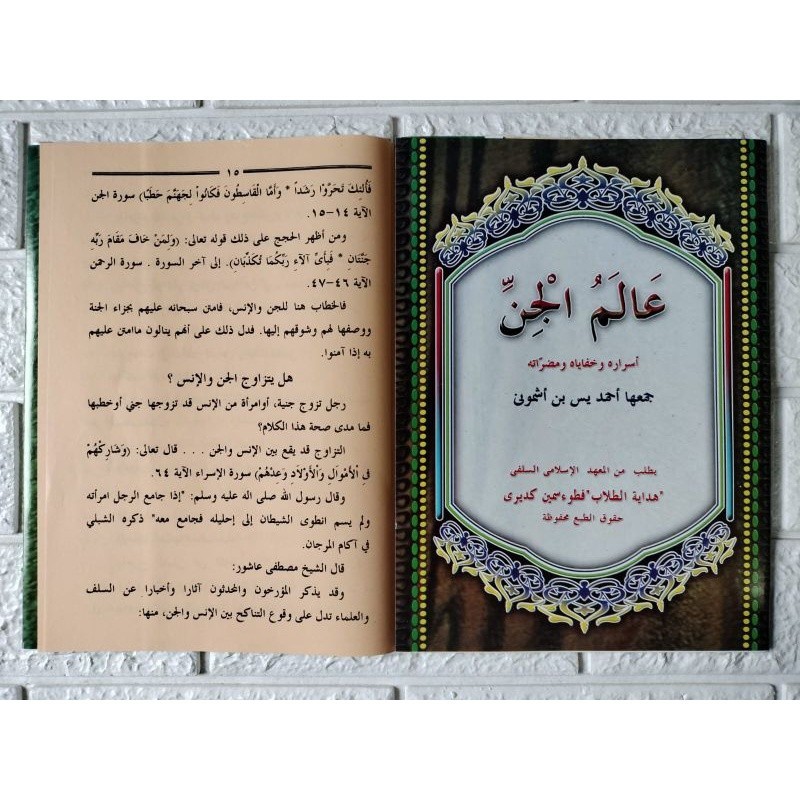 ١٥
فَأُلئِكَ تَحَرَّوْا رَشَداً * وَأَمَّا الْقَاسِطُونَ فَكَانُواْ لِجَهَنَّمَ حَطَبًا) سورة الجن
الآية ١٤-١٥.
ومن أظهر الحجج على ذلك قوله تعالى: (وَلِمَنْ خَافَ مَقَامَ رَبِّهِ
جَنَّتَانِ * فَبِأَىِّ آلآءِ رَبِّكُمَا تُكَذِّبَانِ). إلى آخر السورة . سورة الرحمن
الآية ٤٦-٤٧.
فالخطاب هنا للجن والإنس، فامتن سبحانه عليهم بجزاء الجنة
ووصفها لهم وشوقهم إليها. فدل ذلك على أنهم ينالون ماامتن عليهم
به إذا آمنوا.
هل يتزاوج الجن والإنس ؟
رجل تزوج جنية، أوامرأة من الإنس قد تزوجها جني أوخطبها
فما مدى صحة هذا الكلام؟
التزاوج قد يقع بين الإنس والجن . . . قال تعالى: (وَشَارِكْهُمْ
فِى الْأَمْوَالِ وَالْأَوْلَادِ وَعِدْهُمْ) سورة الإسراء الآية ٦٤.
وقال رسول الله صلى اله عليه وسلم: "إذا جامع الرجل امرأته
ولم يسم انطوى الشيطان إلى إحليله فجامع معه" ذكره الشبلي
في آكام المرجان.
قال الشيخ مصطفى عاشور:
وقد يذكر المؤرخون والمحدثون آثارا وأخبارا عن السلف
والعلماء تدل على وقوع التناكح بين الإنس والجن، منها:
عَالَمُ الْجِنِّ
أسراره وخفاياه ومضرّاته
جمعها أحمد يس بن أشمونى
يطلب من المعهد الإسلامى السلفى
"هداية الطلاب" فطوءسمين كديرى
حقوق الطبع محفوظة